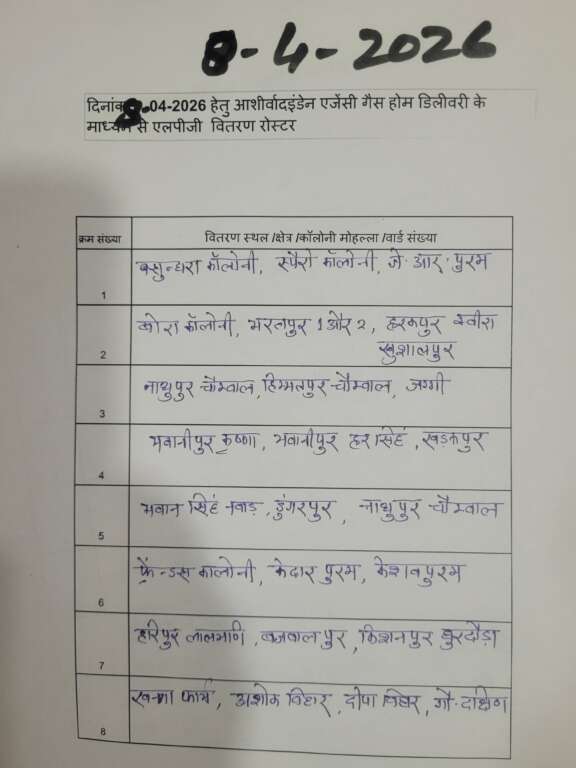 8-4-2026
दिनांक 8-04-2026 हेतु आशीर्वादइंडेन एजेंसी गैस होम डिलीवरी के
माध्यम से एलपीजी वितरण रोस्टर
क्रम संख्या वितरण स्थल /क्षेत्र /कॉलोनी मोहल्ला /वार्ड संख्या
1 वसुन्धरा कॉलोनी, स्पैरो कॉलोनी, जे. आर. पुरम
2 वोरा कॉलोनी, भरतपुर 1 और 2, हरकपुर क्वीरा
खुशालपुर
3 नाथुपुर चौम्वाल, हिम्मतपुर चौम्वाल, जग्गी
4 भवानीपुर कृष्णा, भवानीपुर हरसिंह, खड़कपुर
5 भवान सिंह नवाड़, डुंगरपुर, नाथुपुर चौम्वाल
6 फ्रेन्डस कालोनी, केदार पुरम, केशवपुरम
7 हरिपुर लालमणि, बजवालपुर, किशनपुर घुरदौड़ा
8 खन्ना फार्म, अशोक विहार, दीपा विहार, गौ.